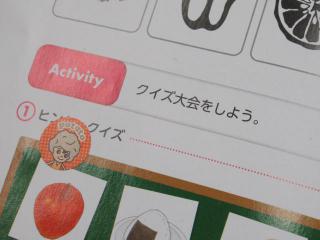 Activity
クイズ大会をしよう。
① ヒン クイズ
potato